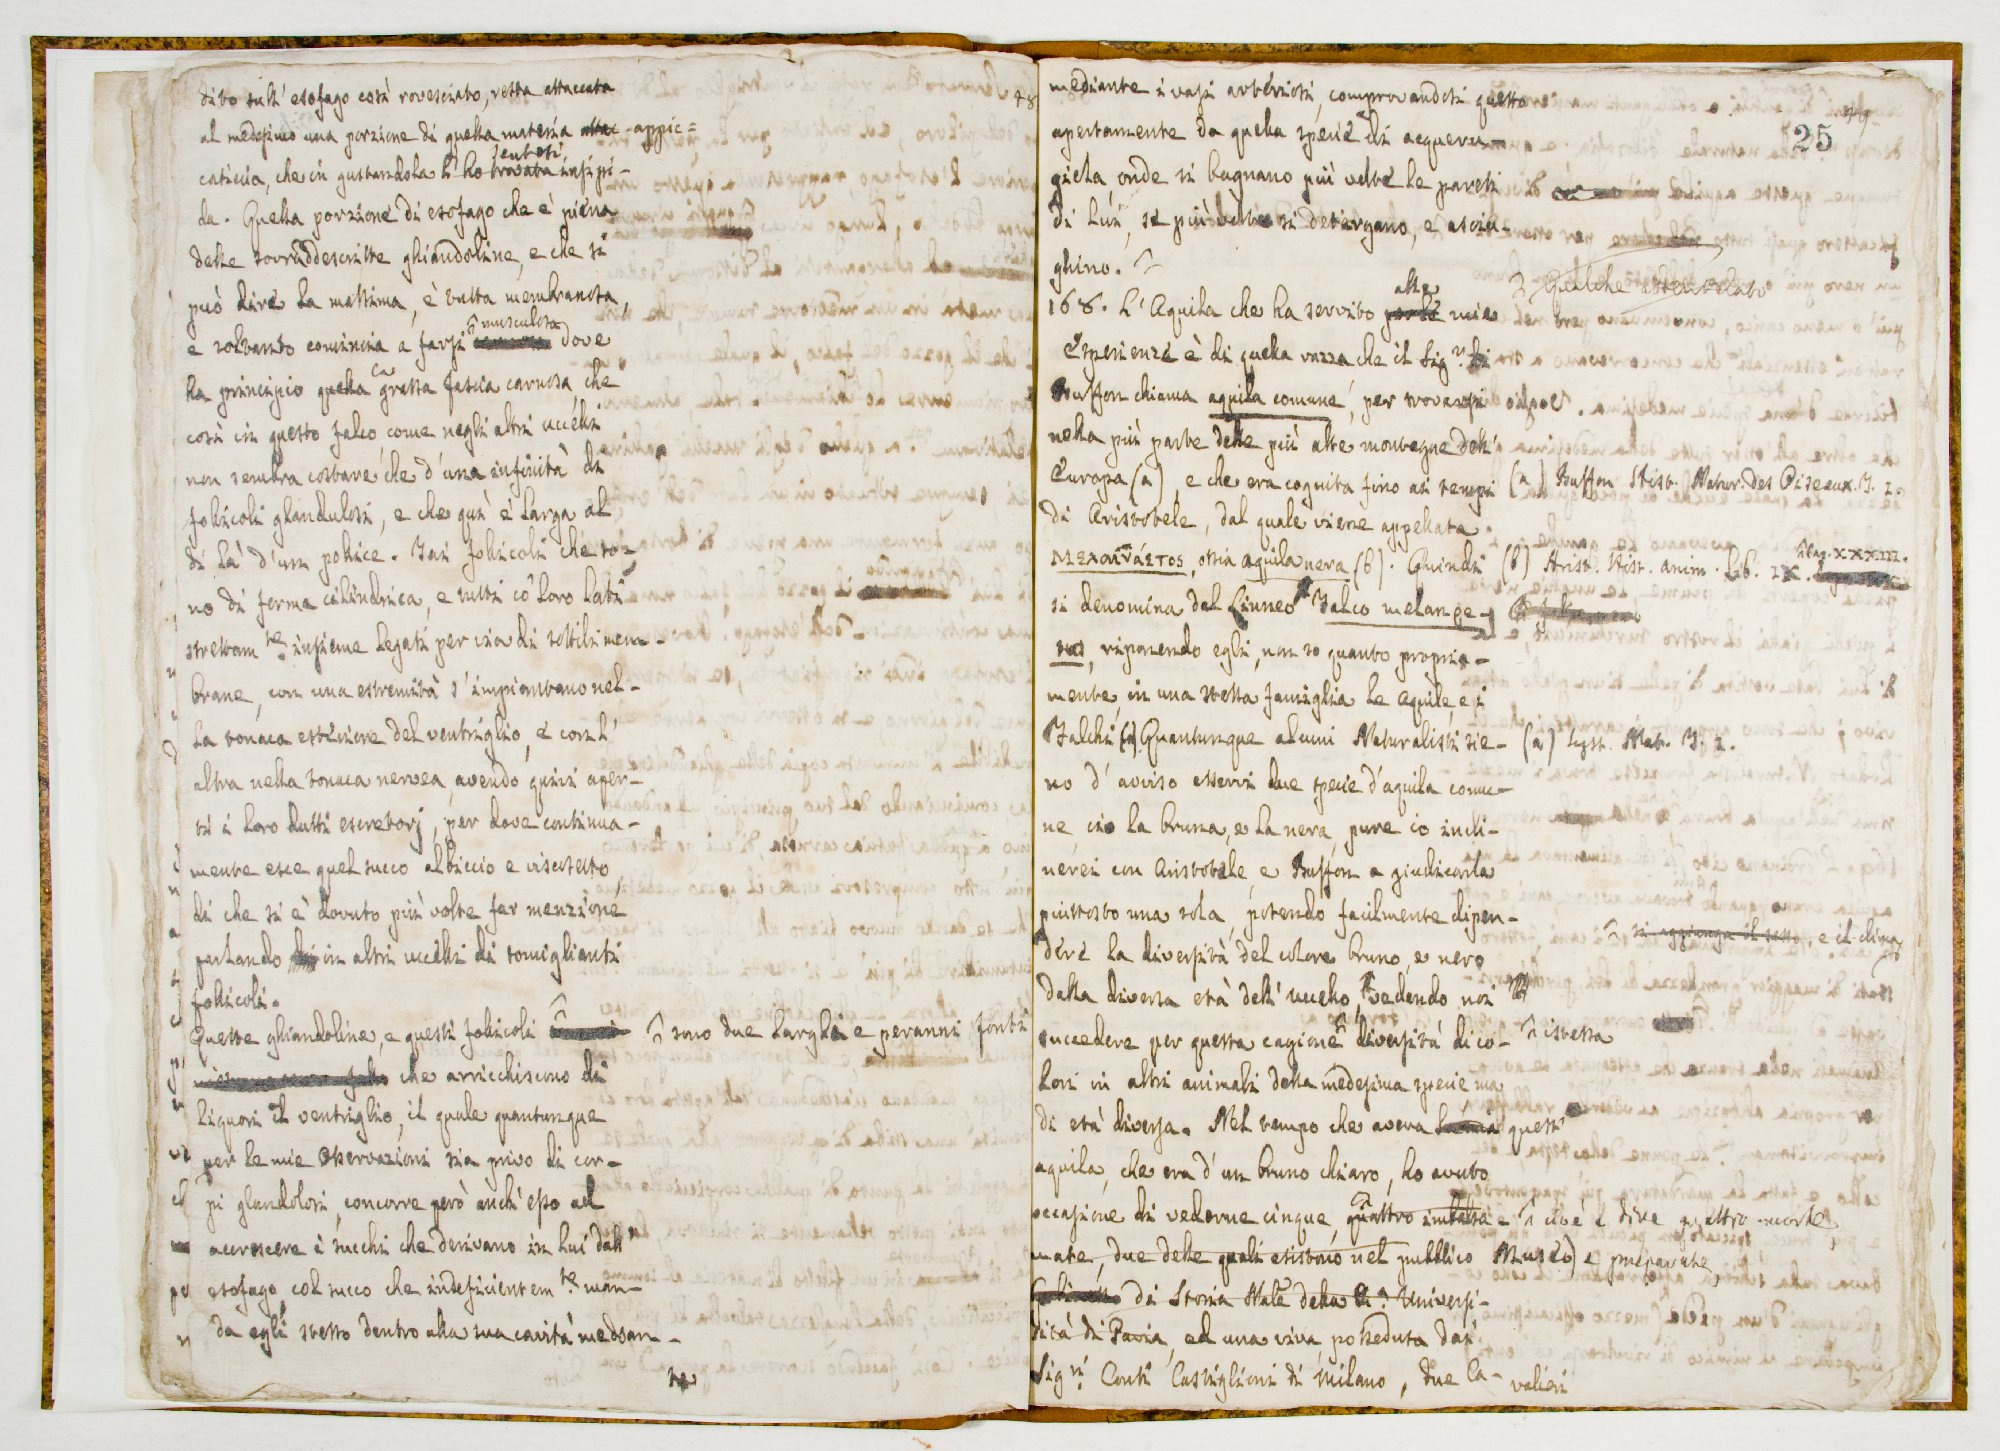 dito sull' esofago così rovesciato, resta attaccata
al medesimo una porzione di quella materia attac- appic=
caticcia, che in gustandola l' ho trovata sentesi insipi-
da. Quella porzione di esofago che è piena
delle sovraddescritte ghiandoline, e che si
può dire la massima, è tutta membranosa,
e soltanto comincia a farsi musculosa dove
ha principio quella grossa fascia carnosa, che
così in questo falco come negli altri uccelli
non sembra costare che d' una infinità di
follicoli glandulosi, e che qui è larga al
di là d' un pollice. Tai follicoli che so-
no di forma cilindrica, e tutti co' loro lati
strettam.te insieme legati per via di sottili mem-
brane, con una estremità s' impiantano nel-
la tonaca esteriore del ventriglio, e con l'
altra nella tonaca nervea, avendo quivi aper-
ti i loro dutti escretorj, per dove continua-
mente esce quel succo albiccio e viscosetto,
di che si è dovuto più volte far menzione
parlando di in altri uccelli di somiglianti
follicoli.
Queste ghiandoline, e questi follicoli sono due larghi e perenni fonti
che arricchiscono di
liquori il ventriglio, il quale quantunque
per le mie osservazioni sia privo di cor-
pi glandolosi, concorre però anch' esso ad
accrescere i succhi che derivano in lui dall'
esofago, col succo che indeficientem.te man-
da egli stesso dentro alla sua cavità median-
te
48
mediante i vasi arteriosi, comprovandosi questo
apertamente da quella specie di acqueru-
giola, onde si bagnano più volte le pareti
di lui, se più volte si detergano, e asciu-
ghino.
49
25
Qualche
168. L' Aquila che ha servito per le alle mie
Esperienze è di quella razza che il Sig.r di
Buffon chiama aquila comune, per trovarsi
nella più parte delle più alte montagne dell'
Europa (a), e che era cognita fino ai tempi
(a) Buffon Hist. Natur. des Oiseaux. T. 1.
di Aristotele, dal quale viene appellata
Μελαιναετος, ossia aquila nera (b). Quindi
(b) Arist. Hist. anim. Lib. IX. Cap. XXXIII.
si denomina dal Linneo Falco melanae-
tus, riponendo egli, non so quanto propria-
mente, in una stessa famiglia le Aquile, e i
Falchi (a). Quantunque alcuni Naturalisti sie-
(a) Syst. Nat. T. 1.
no d' avviso esservi due specie d' aquila comu-
ne, cio la bruna, e la nera, pure io incli-
nerei con Aristotele, e Buffon a giudicarla
piuttosto una sola, potendo facilmente dipen-
si aggiunga il sesso, e il clima
dere la diversità del colore bruno, e nero
dalla diversa età dell' uccello, vedendo noi
succedere per questa cagione istessa diversità di co-
lori in altri animali della medesima specie ma
di età diversa. Nel tempo che aveva quest'
aquila, che era d' un bruno chiaro, ho avuto
occasione di vederne cinque, quattro imbalsa-
cioè è dire quattro morte, e preparate,
mate, due delle quali esistono nel pubblico Museo
di Storia Nat.le della R.a Universi-
tità di Pavia, ed una viva, posseduta dai
Sig.ri Conti Castiglioni di Milano, due Ca-
valieri